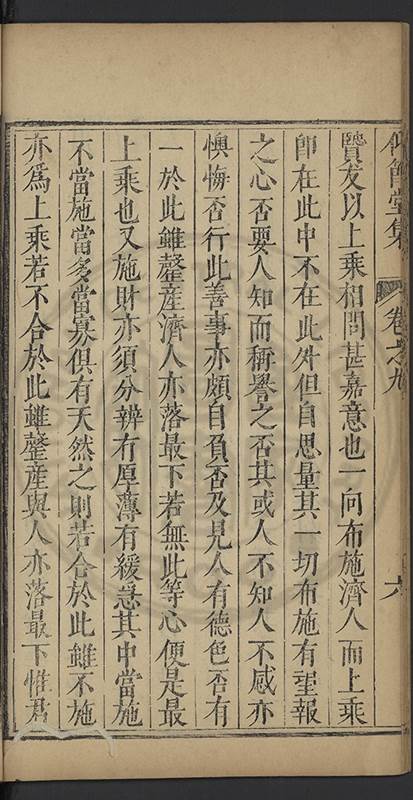 仰節堂集
卷之九
六
賢友以上乘相問甚嘉意也一向布施濟人而上乘
卽在此中不在此外但自思量其一切布施有望報
之心否要人知而稱譽之否其或人不知人不感亦
懊悔否行此善事亦頗自負否及見人有德色否有
一於此雖罄産濟人亦落最下若無此等心便是最
上乘也又施財亦須分辨有厚薄有緩急其中當施
不當施當多當寡俱有天然之則若合於此雖不施
亦爲上乘若不合於此雖罄産與人亦落最下惟君